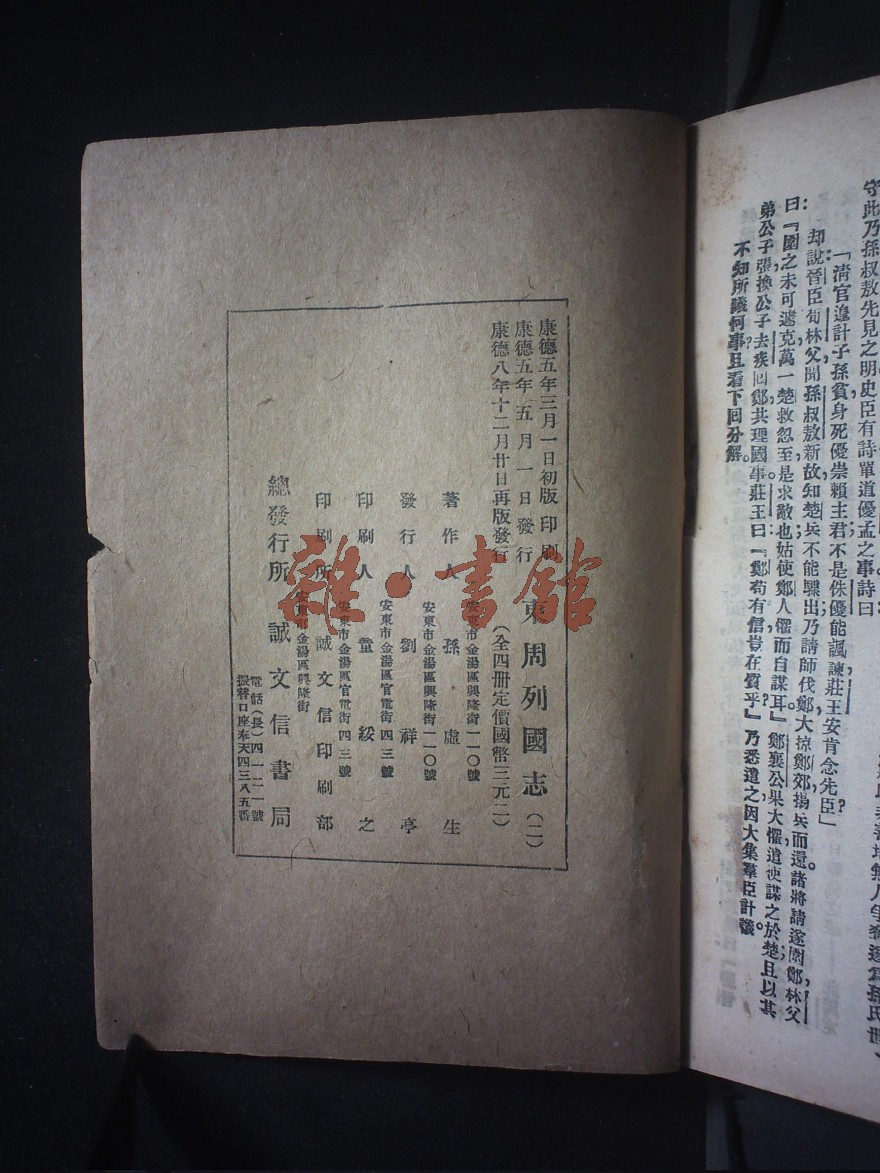 守此乃孫叔敖先見之明史臣有詩單道優孟之事詩曰:
「清官遑計子孫貧，身死優崇賴主君；不是侏優能諷諫，莊王安肯念先臣？」
却說晉臣荀林父聞孫叔敖新故，知楚兵不能驟出，乃請師伐鄭，大掠鄭郊，揚兵而還。諸將請遂圍鄭，林父
曰：『圍之未可遽克，萬一楚救忽至，是求敵也，姑使鄭人懼而自謀耳。』鄭襄公果大懼，遣使謀之於楚，且以其
弟公子張換公子去疾回鄭，共理國事。莊王曰：『鄭苟有信，豈在質乎？』乃悉遣之，因大集羣臣計議。
不知所議何事？且看下回分解。
康德五年三月一日初版印刷
康德五年五月一日發行
康德八年十二月廿日再版發行
東周列國志（二）
（全四册定價國幣三元二）
安東市金湯區興隆街一一〇號
著作人 孫虛生
安東市金湯區興隆街一一〇號
發行人 劉祥亭
安東市金湯區官電街四三號
印刷人 董綏之
安東市金湯區官電街四三號
印刷所 誠文信印刷部
安東市金湯區興隆街
總發行所 誠文信書局
電話（長）四一二一號
振替口座奉天四三八五番
雜·書館